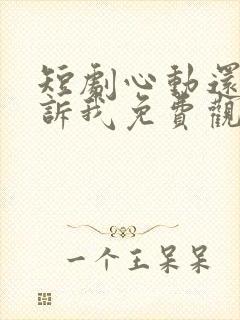 短劇心動還
訴我免費觀
一个王呆呆